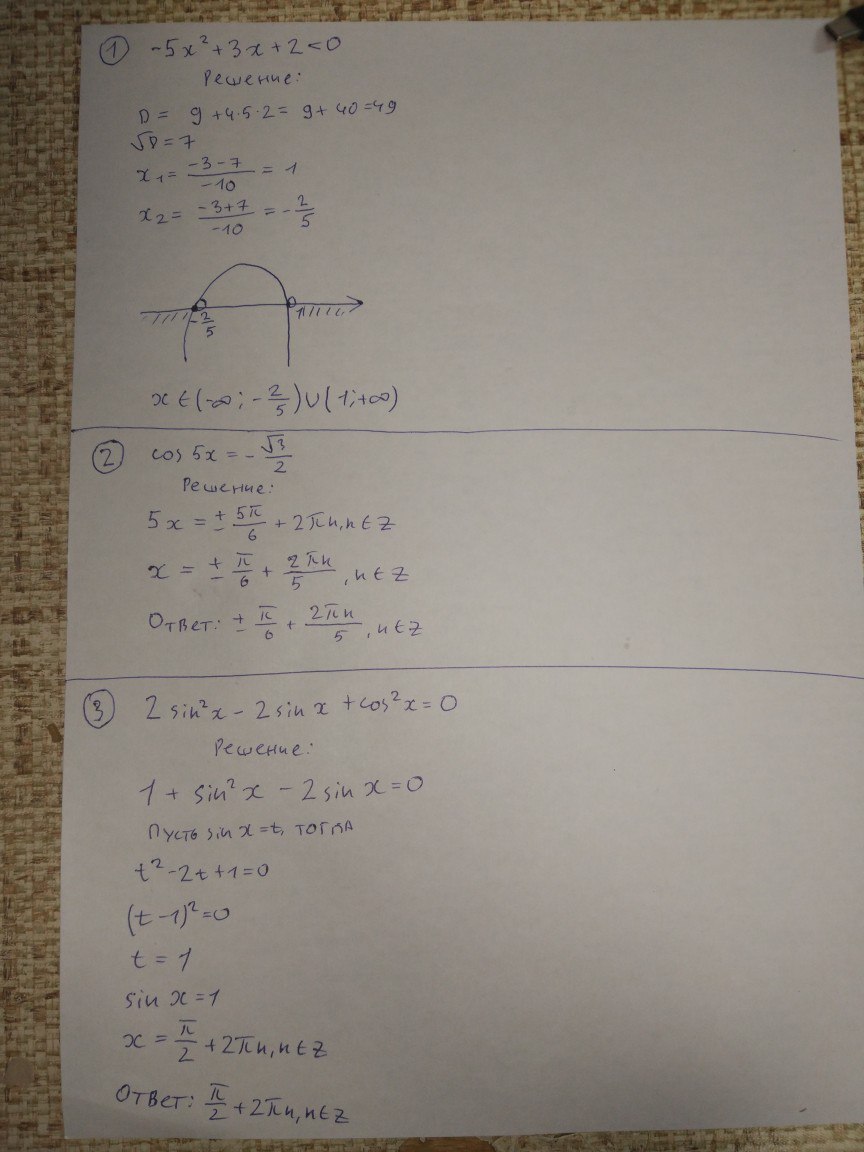 1 -5x² + 3x + 2 < 0
Решение:
D = 9 + 4·5·2 = 9 + 40 = 49
√D = 7
x₁ = (-3 - 7)/(-10) = 1
x₂ = (-3 + 7)/(-10) = -2/5
-2/5 1
x ∈ (-∞; -2/5) ∪ (1; +∞)
2 cos 5x = -√3/2
Решение:
5x = ± 5π/6 + 2πn, n ∈ Z
x = ± π/6 + 2πn/5, n ∈ Z
Ответ: ± π/6 + 2πn/5, n ∈ Z
3 2 sin²x - 2 sin x + cos²x = 0
Решение:
1 + sin²x - 2 sin x = 0
Пусть sin x = t, тогда
t² - 2t + 1 = 0
(t - 1)² = 0
t = 1
sin x = 1
x = π/2 + 2πn, n ∈ Z
Ответ: π/2 + 2πn, n ∈ Z